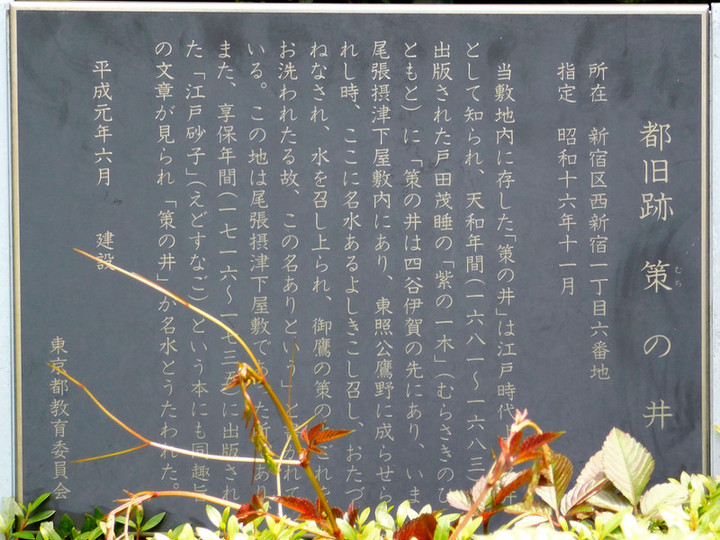 都旧跡 策の井
むち
所在 新宿区西新宿一丁目六番地
指定 昭和十六年十一月
当敷地内に存した「策の井」は江戸時代
として知られ、天和年間(一六八一~一六八三
出版された戸田茂睡の「紫の一本」(むらさきのひ
ともと)に「策の井は四谷伊賀の先にあり、いま
尾張摂津下屋敷内にあり、東照公鷹野に成らせら
れし時、ここに名水あるよしきこし召し、おたづ
ねなされ、水を召し上られ、御鷹の策の れ
お洗われたる故、この名ありという」と かれ
いる。この地は尾張摂津下屋敷で
また、享保年間(一七一六~一七三五)に出版され
た「江戸砂子」(えどすなご)という本にも同趣
の文章が見られ「策の井」が名水とうたわれた。
平成元年六月 建設
東京都教育委員会